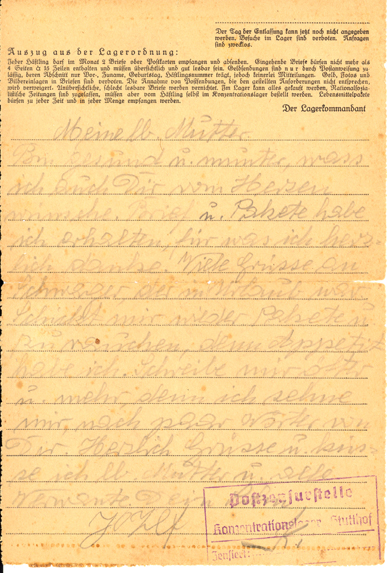 Der Tag der Entlassung kann jetzt noch nicht angegeben
werden. Besuche im Lager sind verboten. Anfragen
sind zwecklos.
Auszug aus der Lagerordnung:
Jeder Häftling darf im Monat 2 Briefe oder Postkarten empfangen und absenden. Eingehende Briefe dürfen nicht mehr als
4 Seiten à 15 Zeilen enthalten und müssen übersichtlich und gut lesbar sein. Geldsendungen sind nur durch Postanweisung zu-
lässig, deren Abschnitt nur Vor-, Zuname, Geburtstag, Häftlingsnummer trägt, jedoch keinerlei Mitteilungen. Geld, Fotos und
Bildereinlagen in Briefen sind verboten. Die Annahme von Postsendungen, die den gestellten Anforderungen nicht entsprechen,
wird verweigert. Unübersichtliche, schlecht lesbare Briefe werden vernichtet. Im Lager kann alles gekauft werden. Nationalsozia-
listische Zeitungen sind zugelassen, müssen aber vom Häftling selbst im Konzentrationslager bestellt werden. Lebensmittelpakete
dürfen zu jeder Zeit und in jeder Menge empfangen werden.
Der Lagerkommandant
Meine lb. Mutter
bin gesund u. munter, wass
ich auch Dir vom Herzen
wünsche. Brief u. Pakete habe
ich erhalten, für was ich herz-
lich danke. Viele Grüsse an
Schwager, der in Urlaub war
Schickt mir wieder Pakete u
zu rauchen, denn Appetit
habe ich. Schreibe mir öfter
u. mehr, denn ich sehne
mir nach paar Worte von
Dir. Herzlich Grüsse u. küs-
se ich lb. Mutter u. alle
Verwante Dein
Postzensurstelle
Konzentrationslager Stutthof
Zensiert: